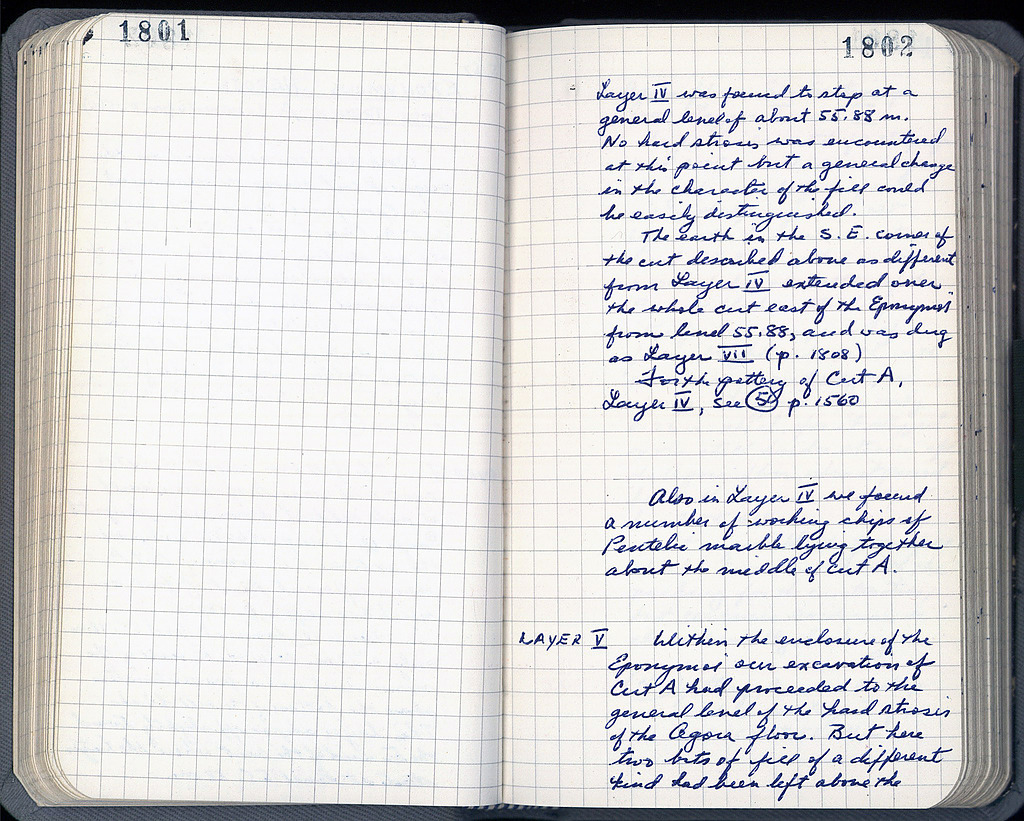 1801
1802
Layer IV was found to stop at a
general level of about 55.88 m.
No hard strosis was encountered
at this point but a general change
in the character of the fill could
be easily distinguished.
The earth in the S.E. corner of
the cut described above as different
from Layer IV extended over
the whole cut east of the Eponymoi
from level 55.88, and was dug
as Layer VII (p. 1808)
For the pottery of Cut A,
Layer IV, see p. 1560
Also in Layer IV we found
a number of working chips of
Pentelic marble lying together
about the middle of Cut A.
LAYER V Within the enclosure of the
Eponymoi our excavation of
Cut A had proceeded to the
general level of the hard strosis
of the Agora floor. But here
two bits of fill of a different
kind had been left above the